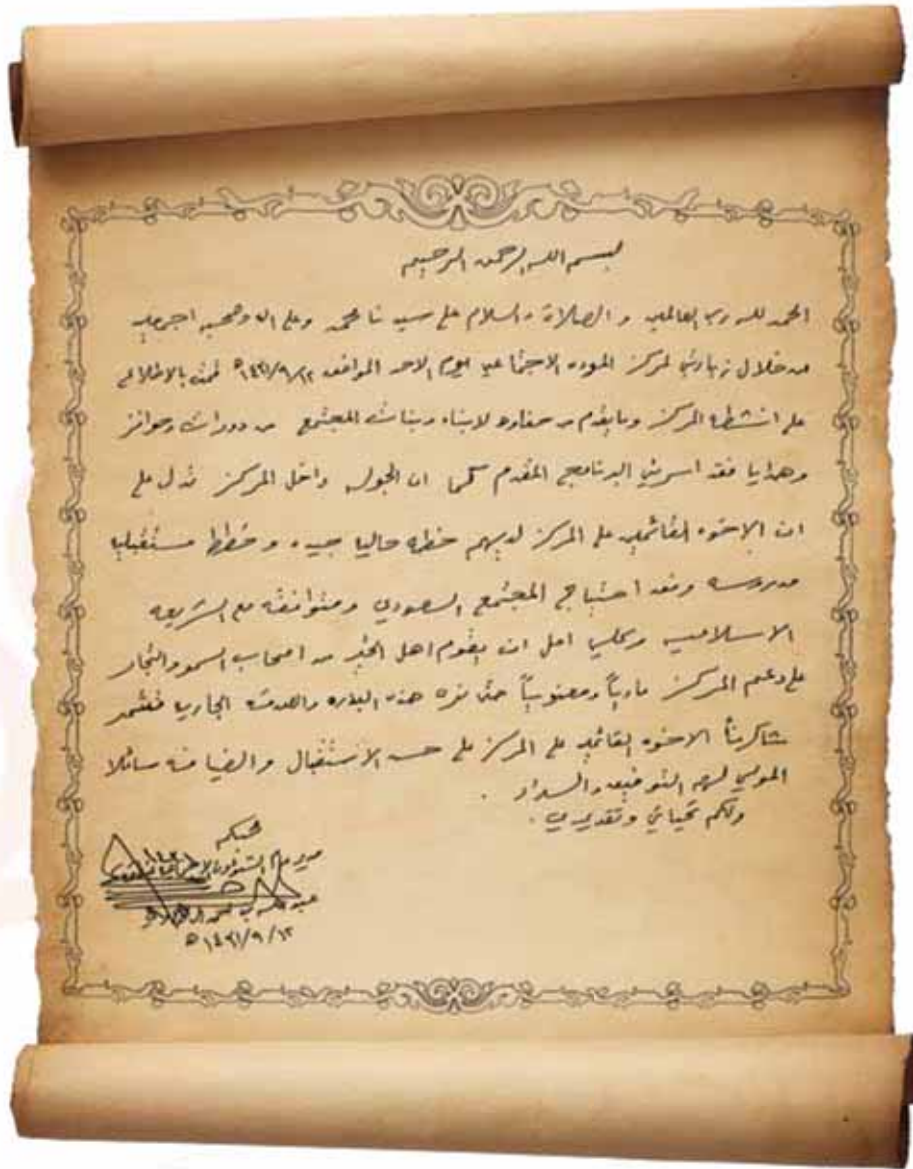 بسم الله الرحمن الرحيم
الحمد لله رب العالمين و الصلاة والسلام على سيدنا محمد وعلى اله وصحبه اجمعين
من خلال زيارتي لمركز الموده الاجتماعي يوم الاحد الموافق ١٤٣١/٩/١٢هـ قمت بالاطلاع
على انشطة المركز وما يقدم من لابناء وبنات المجتمع من دورات وحوافز
وهدايا فقد اسرني البرنامج المقدم كما ان الجوله داخل المركز تدل على
ان الاخوه القائمين على المركز لديهم خطه حاليا جيده وخطط مستقبليا
مدروسه وفقد احتياج المجتمع السعودي ومتوافقه مع الشريعه
الاسلاميه وكلي امل ان يقوم اهل الخير من اصحاب السمو والتجار
على دعم المركز مادياً ومعنوياً حتى نرى هذه البذره والصدقه الجاريه فتثمر
شاكريناً الاخوه القائمين على المركز على حسن الاستقبال والضيافه سائلا
المولى لهم التوفيق والسداد .
ولكم تحياتي وتقديري .
محبكم
مدير عام الشؤون
عبدالله بن
١٤٣١/٩/١٢هـ